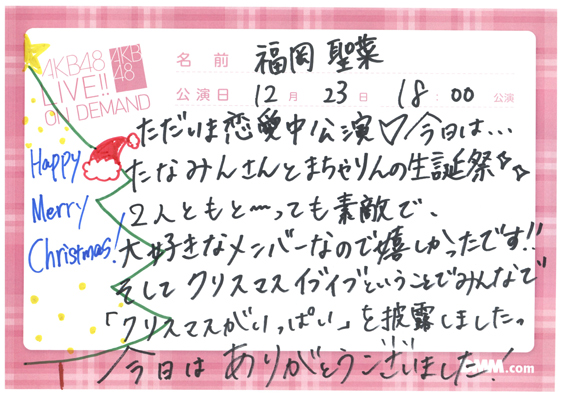 AKB48
LIVE!!
ON DEMAND
AKB
48
名前 福岡 聖菜
公演日 12月 23日 18:00 公演
ただいま恋愛中公演♡今日は…
たなみんさんとまちゃりんの生誕祭✧✧
2人ともと〜っても素敵で、
大好きなメンバーなので嬉しかったです!!
そしてクリスマスイブイブということでみんなで
「クリスマスがいっぱい」を披露しました。
今日はありがとうございました!
Happy
Merry
Christmas!
DMM.com